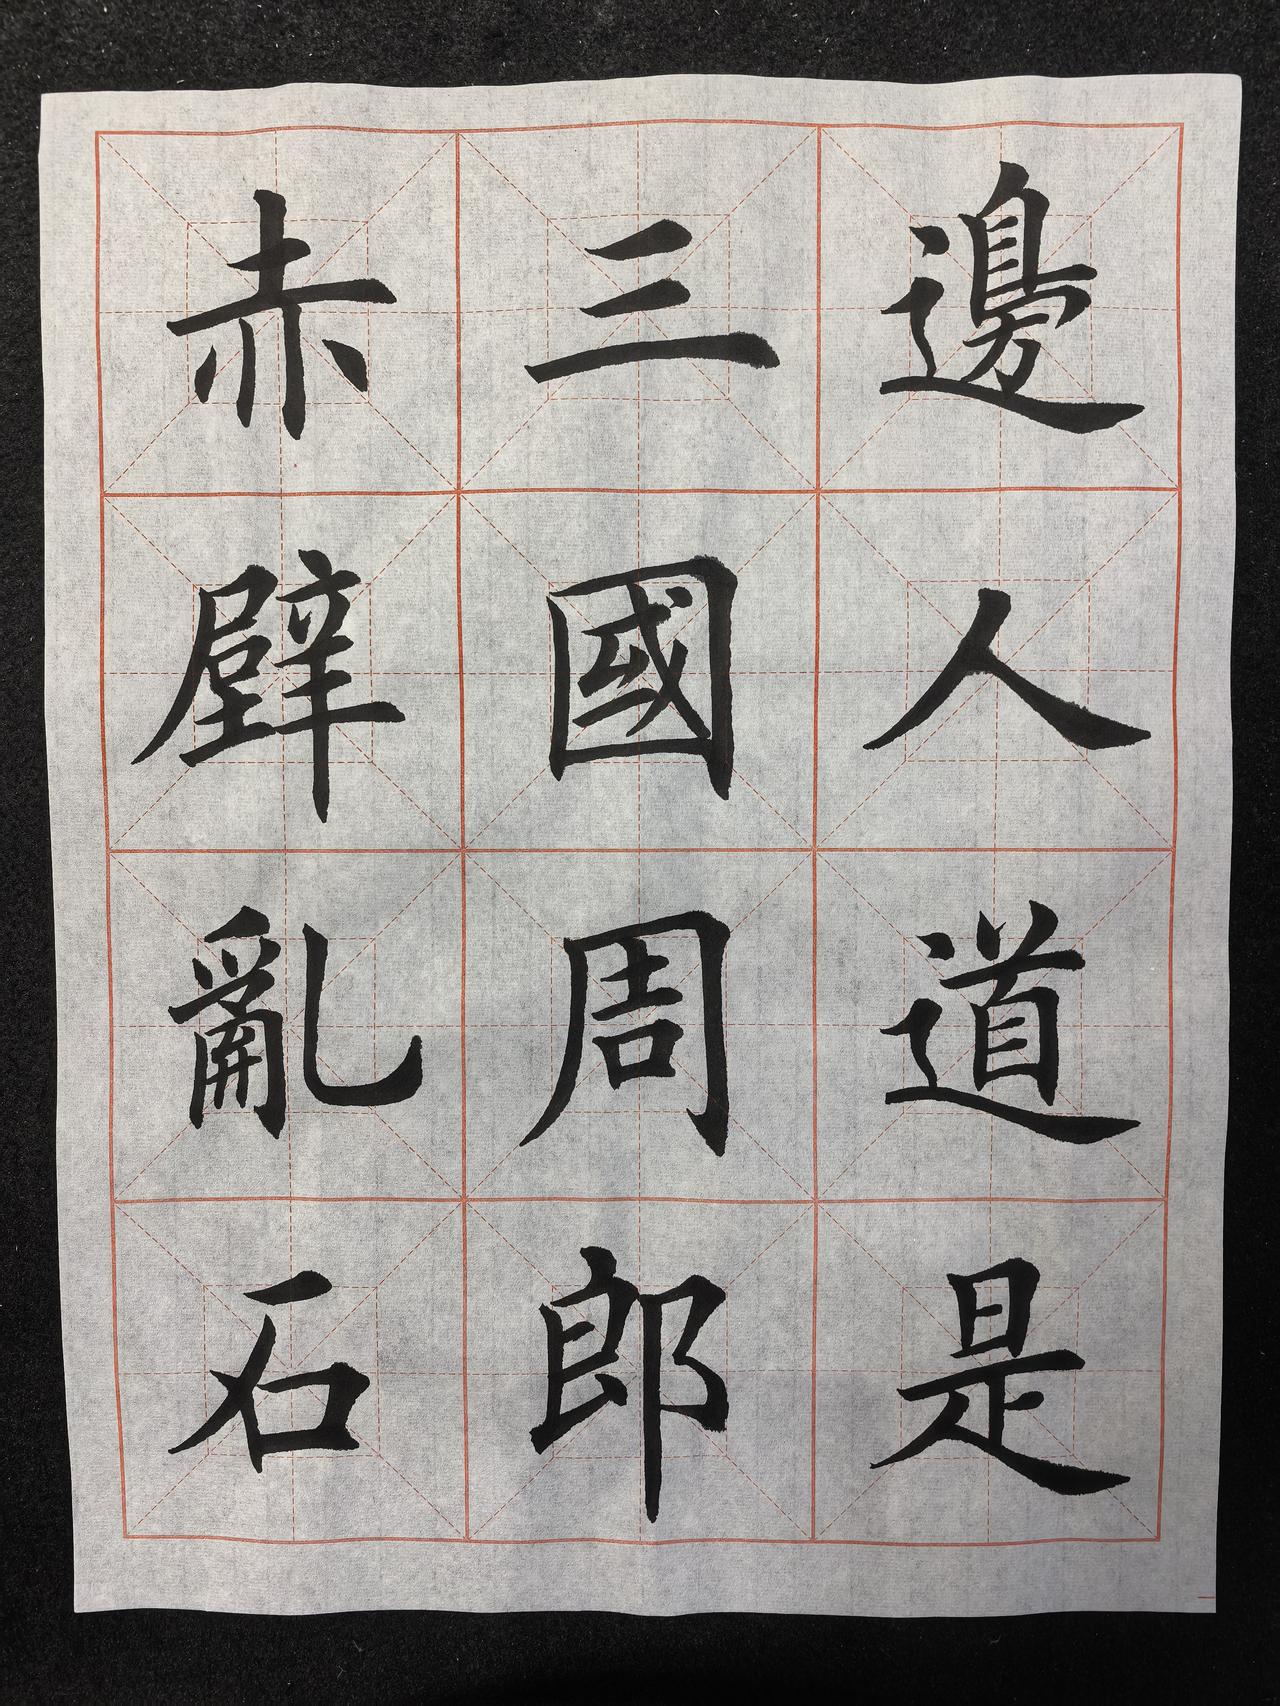 邊人道是
三國周郎
赤壁亂石